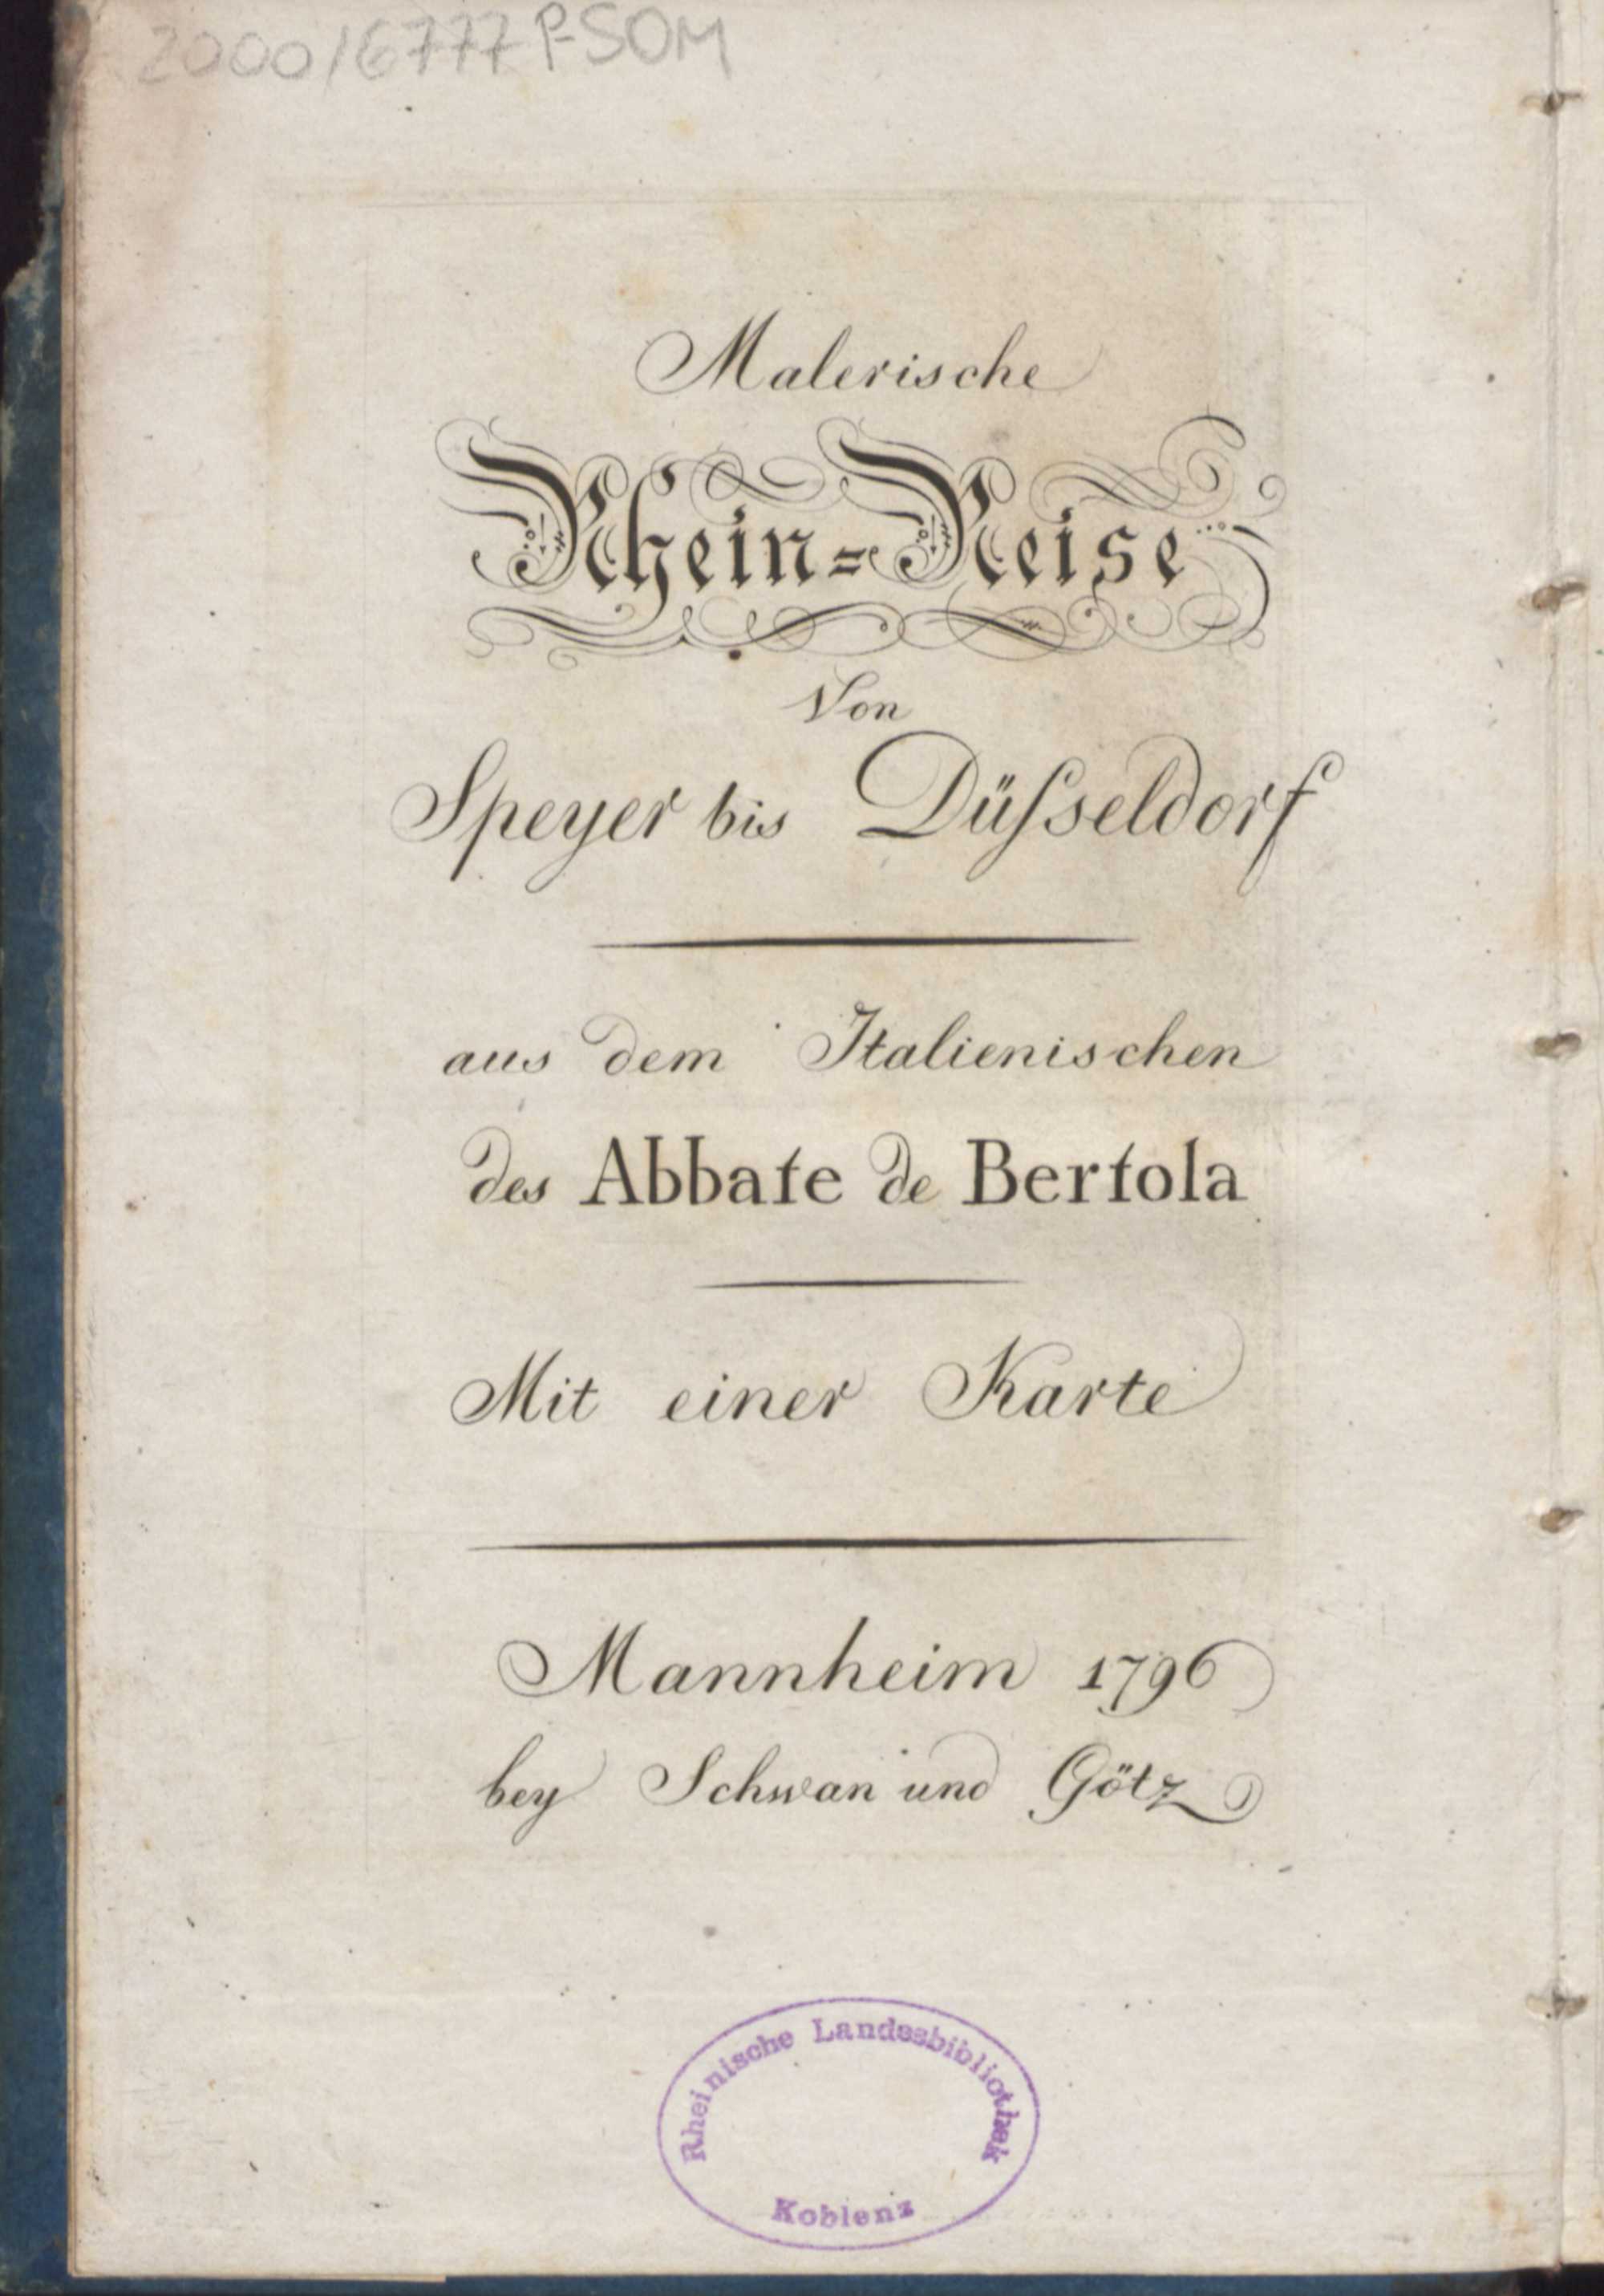 2000/6777 P-SOM
Malerische
Rhein=Reise
Von
Speyer bis Düſseldorf
aus dem Italienischen
des Abbate de Bertola
Mit einer Karte
Mannheim 1796
bey Schwan und Götz
Rheinische Landesbibliothek
Koblenz